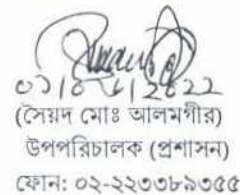 (সৈয়দ মোঃ আলমগীর)
উপপরিচালক (প্রশাসন)
ফোন: ০২-২২৩৩৮৯৩৫৫